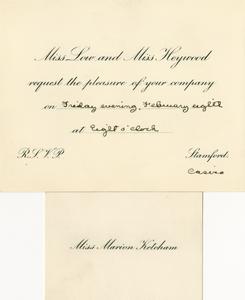 Miss Low and Miss Heywood
request the pleasure of your company
on Friday evening, February eighth
at Eight o'clock
R.S.V.P. Stamford.
Casino
Miss Marion Ketcham